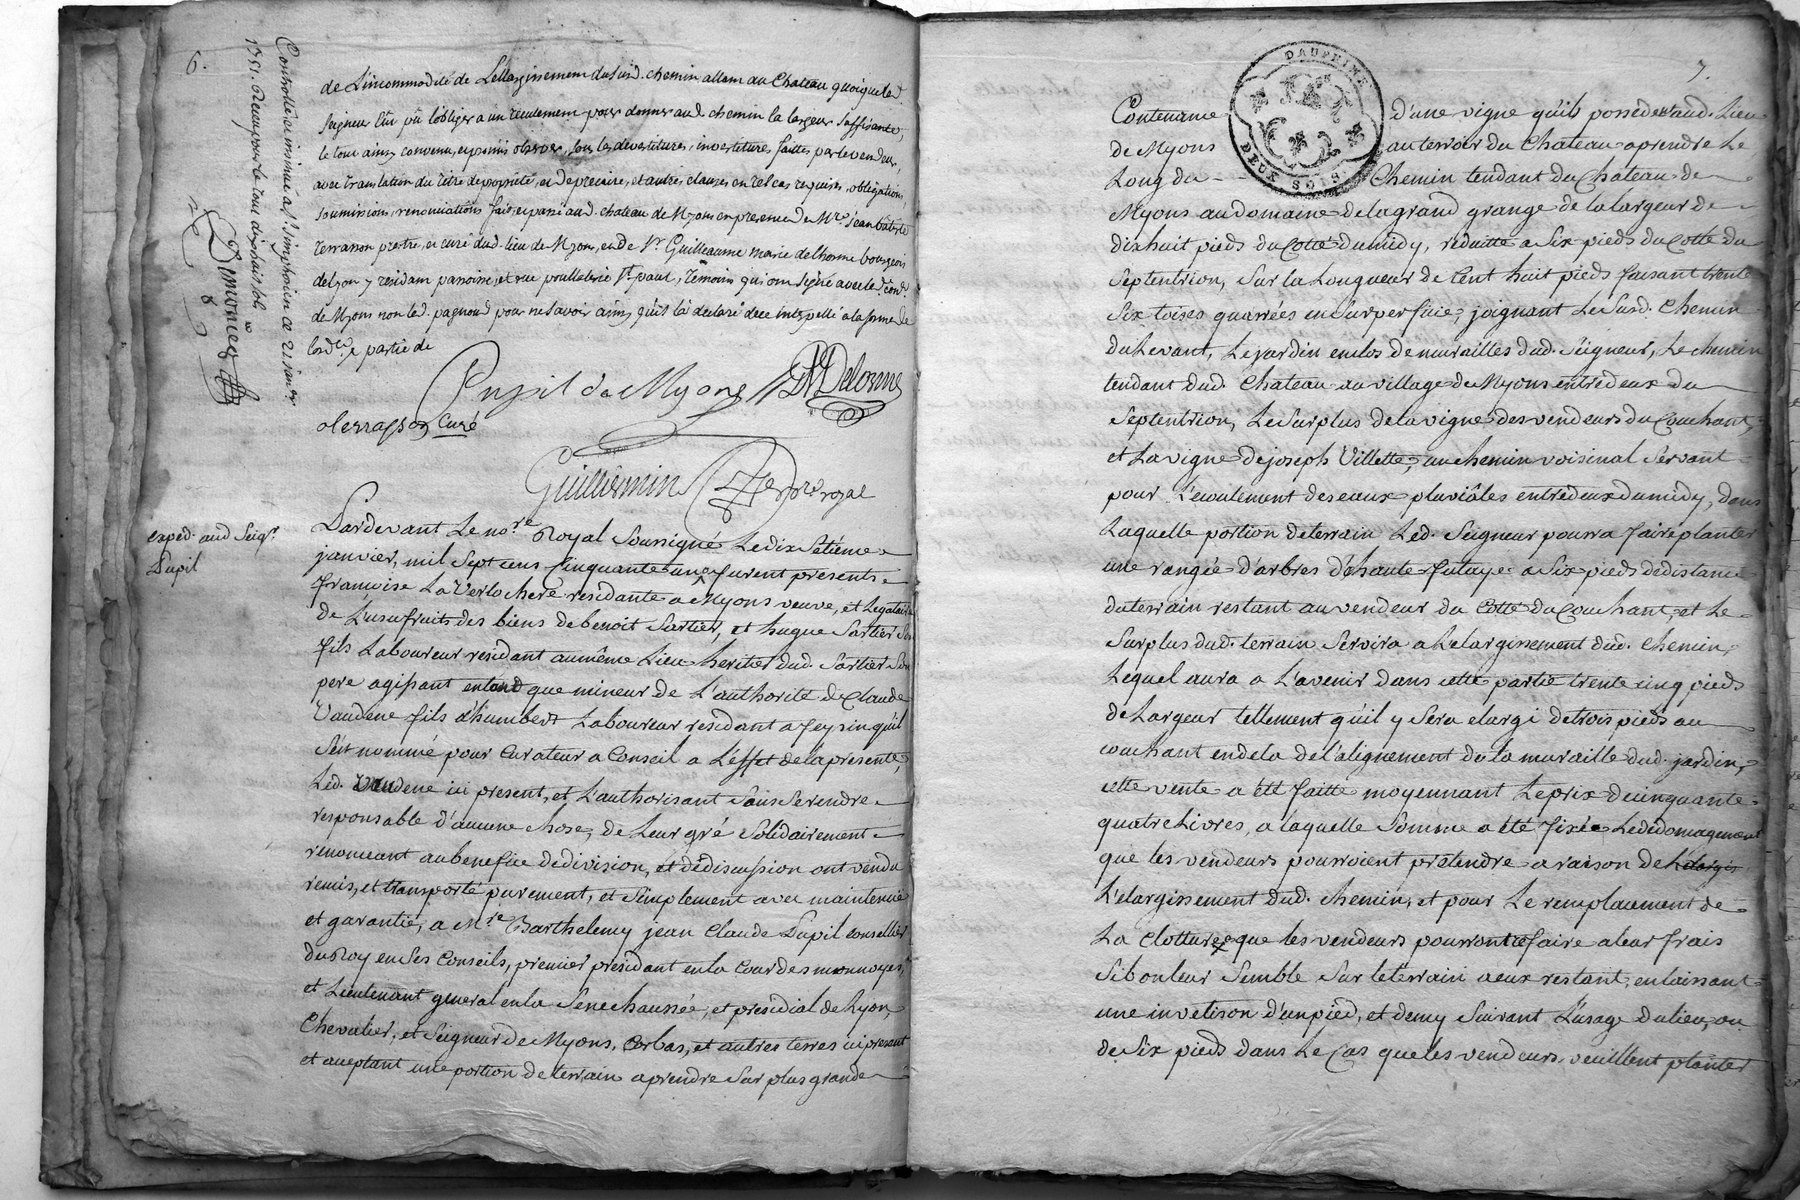 6.
Controllé et insinué a St Simphorien ce 21 janvier
1751. Receu pour le tout
de Lincommodité de Lellargissement dususd. chemin allant au Chateau quoique led.
Seigneur eut pû lobliger a un reculement pour donner aud. chemin la largeur suffisante,
le tout ainsy convenu, et promis observer, sous les devestitures, investitures faittes par le vendeur,
avec translation du titre de proprieté, et de precaire, et autres clauses en tel cas requises, obligations,
soumissions, renonciations fait, et passé aud. chateau de Myons en presence de Mre jean batiste
terrasson pretre, et curé dud. lieu de Myons, et de Sr Guilleaume marie delhorme bourgeois
de lyon y residant paroisse, et rue poullalerie St. paul, temoins qui ont signé avec led.
de Myons non led. pagnoud pour ne savoir ainsy qu'il la declaré de ce interpellé a la forme de
partie de
Pupil de Myons MDelorme
terrasson Curé
Guillermin Nore royal
exped. aud Seigr.
Pupil
Pardevant Le nore Royal Soussigné Le dix Setième
janvier, mil Sept cens Cinquante un, furent presents
francoise La Verlochere residante a Myons veuve, et Legataire
de L'usufruits des biens de benoit Sartier, et hugue Sartier Son
fils Laboureur residant aumême Lieu heritier dud. Sartier Son
pere agissant entand que mineur de L'authorité de Claude
Vaudene fils d'humbert Laboureur residant a feyzin qu'il
Seit nommé pour Curateur a Conseil a L'effet de la presente,
Led. Vaudene ici present, et L'authorisant Sans Se rendre
responsable d'aucune chose, de Leur gré Solidairement
renonceant au benefice de division, et de discussion ont vendu
remis, et transporté purement, et Simplement avec maintenüe
et garantie, a Mre Barthelemy jean Claude Pupil conseiller
du Roy en Ses Conseils, premier president en la Cour des monnoyes,
et Lieutenant general en la Senechaussée, et presidial de Lyon,
Chevalier, et Seigneur de Myons, Corbas, et autres terres ici present
et aceptant une portion de terrain a prendre Sur plus grande
7.
DAUPHINE
DEUX SOLS
Contenance d'une vigne qu'ils possèdent aud. Lieu
de Myons au terroir du Chateau a prendre Le
Long du Chemin tendant du Chateau de
Myons au domaine de la grand grange de la largeur de
dixhuit pieds du Cotté du midy, reduitte a Six pieds du Cotté du
Septentrion, Sur la Longueur de Cent huit pieds faisant trente
Six toises quarrées en Surperficie, joignant Le Susd. Chemin
du Levant, Le jardin enclos de murailles dud. Seigneur, Le chemin
tendant dud. Chateau au village de Myons entredeux du
Septentrion, Le Surplus de la vigne des vendeurs du Couchant,
et La vigne de joseph Villette, un chemin voisinal Servant
pour L'ecoulement des eaux pluviâles entredeux du midy, dans
Laquelle portion de terrain Led. Seigneur pourra faire planter
une rangée d'arbres d'haute futaye a Six pieds de distance
du terrain restant au vendeur du Cotté du Couchant, et Le
Surplus dud. terrain Servira a Lelargissement dud. Chemin,
Lequel aura a L'avenir dans cette partie trente cinq pieds
de Largeur tellement qu'il y Sera elargi de trois pieds au
couchant en dela de l'alignement de la muraille dud. jardin,
cette vente a été faitte moyennant Le prix de cinquante
quatre Livres, a laquelle Somme a été fixée Le dédomagement
que les vendeurs pourroient pretendre a raison de
L'elargissement dud. chemin, et pour Le remplacement de
La Clotture que les vendeurs pourront refaire a leur frais
Si bon leur Semble Sur le terrain a eux restant, en laissant
une invetison d'un pied, et demy Suivant L'usage du lieu, ou
de Six pieds dans Le Cas que les vendeurs veuillent planter